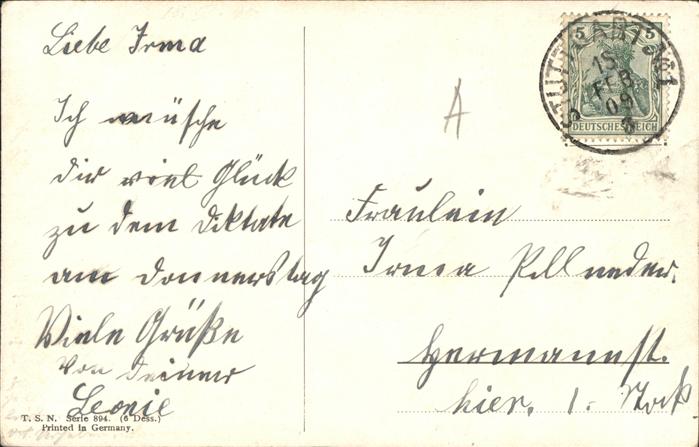 Liebe Irma
Ich wüsche
dir viel Glück
zu dem Diktate
am Donnerstag
Viele Grüße
von deiner
Leonie
T. S. N. Serie 894. (6 Dess.)
Printed in Germany.
A
5 5
STUTTGART No 1
15
FEB
09
DEUTSCHES REICH
Fräulein
Irma
Hermannst.
hier, 1. Stock